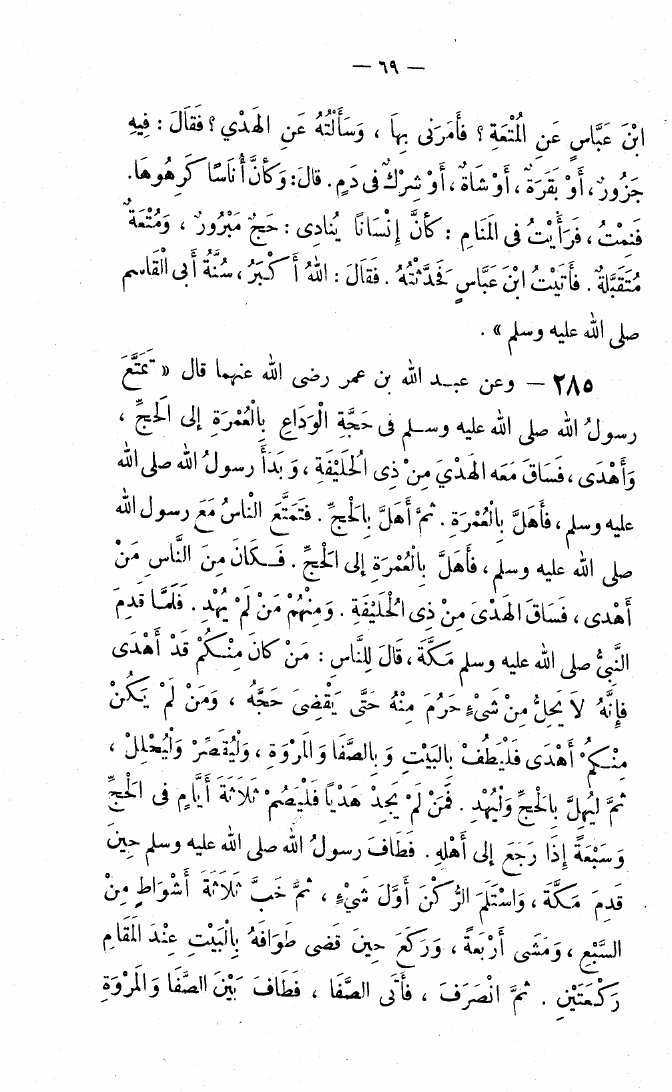 — ٦٩ —
ابْنَ عَبَّاسٍ عَنِ الْمُتْعَةِ ؟ فَأَمَرَنِى بِهَا ، وَسَأَلْتُهُ عَنِ الْهَدْيِ ؟ فَقَالَ : فِيهِ
جَزُورٌ ، أَوْ بَقَرَةٌ ، أَوْ شَاةٌ ، أَوْ شِرْكٌ فى دَمٍ . قالَ : وَكَأَنَّ أُنَاسًا كَرِهُوهَا .
فَنِمْتُ ، فَرَأَيْتُ فى الْمَنَامِ : كَأَنَّ إِنْسَانًا يُنَادِى : حَجٌّ مَبْرُورٌ ، وَمُتْعَةٌ
مُتَقَبَّلَةٌ . فَأَتَيْتُ ابْنَ عَبَّاسٍ فَحَدَّثْتُهُ . فَقَالَ : اللهُ أَكْبَرُ ، سُنَّةُ أَبِى الْقَاسِمِ
صلى الله عليه وسلم » .
٢٨٥ — وعن عبد الله بن عمر رضى الله عنهما قال « تَمَتَّعَ
رسولُ الله صلى الله عليه وسلم فى حَجَّةِ الْوَدَاعِ بِالْعُمْرَةِ إلى الْحَجِّ ،
وَأَهْدَى ، فَسَاقَ مَعَه الهَدْيَ مِنْ ذِى الْحُلَيْفَةِ ، وَبَدَأَ رسولُ الله صلى الله
عليه وسلم ، فَأَهَلَّ بِالْعُمْرَةِ . ثُمَّ أَهَلَّ بِالْحَجِّ . فَتَمَتَّعَ النَّاسُ مَعَ رسول الله
صلى الله عليه وسلم ، فَأَهَلَّ بِالْعُمْرَةِ إلى الْحَجِّ . فَكَانَ مِنَ النَّاسِ مَنْ
أَهْدى ، فَسَاقَ الْهَدْىَ مِنْ ذِى الْحُلَيْفَةِ . وَمِنْهُمْ مَنْ لَمْ يُهْدِ . فَلَمَّا قَدِمَ
النَّبِىُّ صلى الله عليه وسلم مَكَّةَ ، قَالَ لِلنَّاسِ : مَنْ كَانَ مِنْكُمْ قَدْ أَهْدَى
فَإِنَّهُ لاَ يَحِلُّ مِنْ شَىْءٍ حَرُمَ مِنْهُ حَتَّى يَقْضِىَ حَجَّهُ ، وَمَنْ لَمْ يَكُنْ
مِنْكُمْ أَهْدَى فَلْيَطُفْ بِالْبَيْتِ وَبِالصَّفَا وَالْمَرْوَةِ ، وَلْيُقَصِّرْ وَلْيُحْلِلْ ،
ثُمَّ لِيُهِلَّ بِالْحَجِّ وَلْيُهْدِ . فَمَنْ لَمْ يَجِدْ هَدْياً فَلْيَصُمْ ثَلاَثَةَ أَيَّامٍ فى الْحَجِّ
وَسَبْعَةً إِذَا رَجَعَ إلى أَهْلِهِ . فَطَافَ رسولُ الله صلى الله عليه وسلم حِينَ
قَدِمَ مَكَّةَ ، وَاسْتَلَمَ الرُّكْنَ أَوَّلَ شَيْءٍ ، ثُمَّ خَبَّ ثَلاَثَةَ أَشْوَاطٍ مِنْ
السَّبْعِ ، وَمَشَى أَرْبَعَةً ، وَرَكَعَ حِينَ قَضى طَوَافَهُ بِالْبَيْتِ عِنْدَ الْمَقَامِ
رَكْعَتَيْنِ . ثُمَّ انْصَرَفَ ، فَأَتَى الصَّفَا ، فَطَافَ بَيْنَ الصَّفَا وَالْمَرْوَةِ